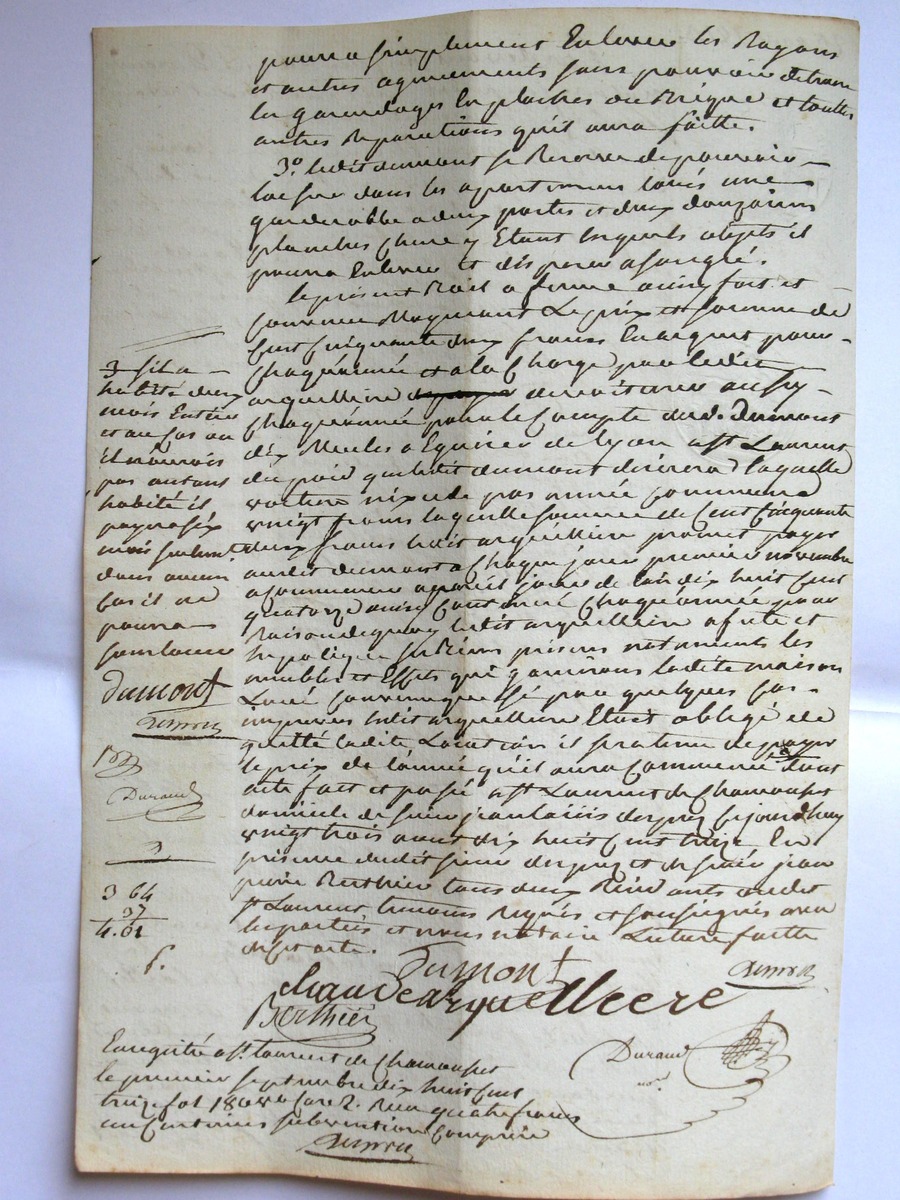 pourra simplement Enlever les Rayons
et autres agréements sans pouvoir détruire
les garendages En planches ou Brique et touttes
autres Reparations qu'il aura faitte.
3º ledit dumont se Reserve de pouvoir
laisser dans les apartemens loués une
garderobbe a deux portes et deux douzaines
planches chene y Etant lesquels objets il
pourra Enlever et disposer a son gré.
le présent Bail a ferme ainsy fait et
convenu Moyenant Le prix et somme de
Cent Cinquante deux francs En argent pour
chaque année et a la Charge par ledit
arquilliere de voiturer aussy
chaque année pour le Compte du d. Dumont
dix Meules a Eguiser de Lyon a St Laurent
du poid que ledit dumont désirera laquelle
voiture
vingt francs laquelle somme de Cent Cinquante
deux francs ledit arquilliere promet payer
audit dumont a Chaque jour premier novembre
a commencer a pareil jour de l'an dix huit Cent
quatorze ainsy Continué Chaque année pour
Raison de quoy ledit arquilliere afecte et
hypotéque ses Biens présens notament les
meubles et Effets qui garnirons ladite maison
Loué convenu que si par quelques cas
imprevu ledit arquilliere Etoit obligé de
quitté ladite Location il sera tenu de payer
le prix de l'année qu'il aura Commencé dont
acte fait et passé a St Laurent de Chamousset
domicile de sieur jean desprez Cejourdhuy
vingt trois aout dix huit Cent treize En
présence dudit sieur desprez et de sieur jean
pierre Berthier tous deux Residants audit
St Laurent temoins Requis et soussignés avec
les parties et nous notaire Lecture faitte
3 s'il a
habité deux
mois Entier
et au Cas ou
il n'auroit
pas autant
habité il
payera six
mois seulement
dans aucun
Cas il ne
pourra
souslouer
dumont
Durand
3 64
37
4.01
Dumont
Claude Arquillieere
Berthier
Durand
not.
Enregistré a St. Laurent de Chamousset
le premier septembre dix huit Cent
treize fol 180 Vo Case 2. Reçu quatre francs
un Centime subvention Comprise